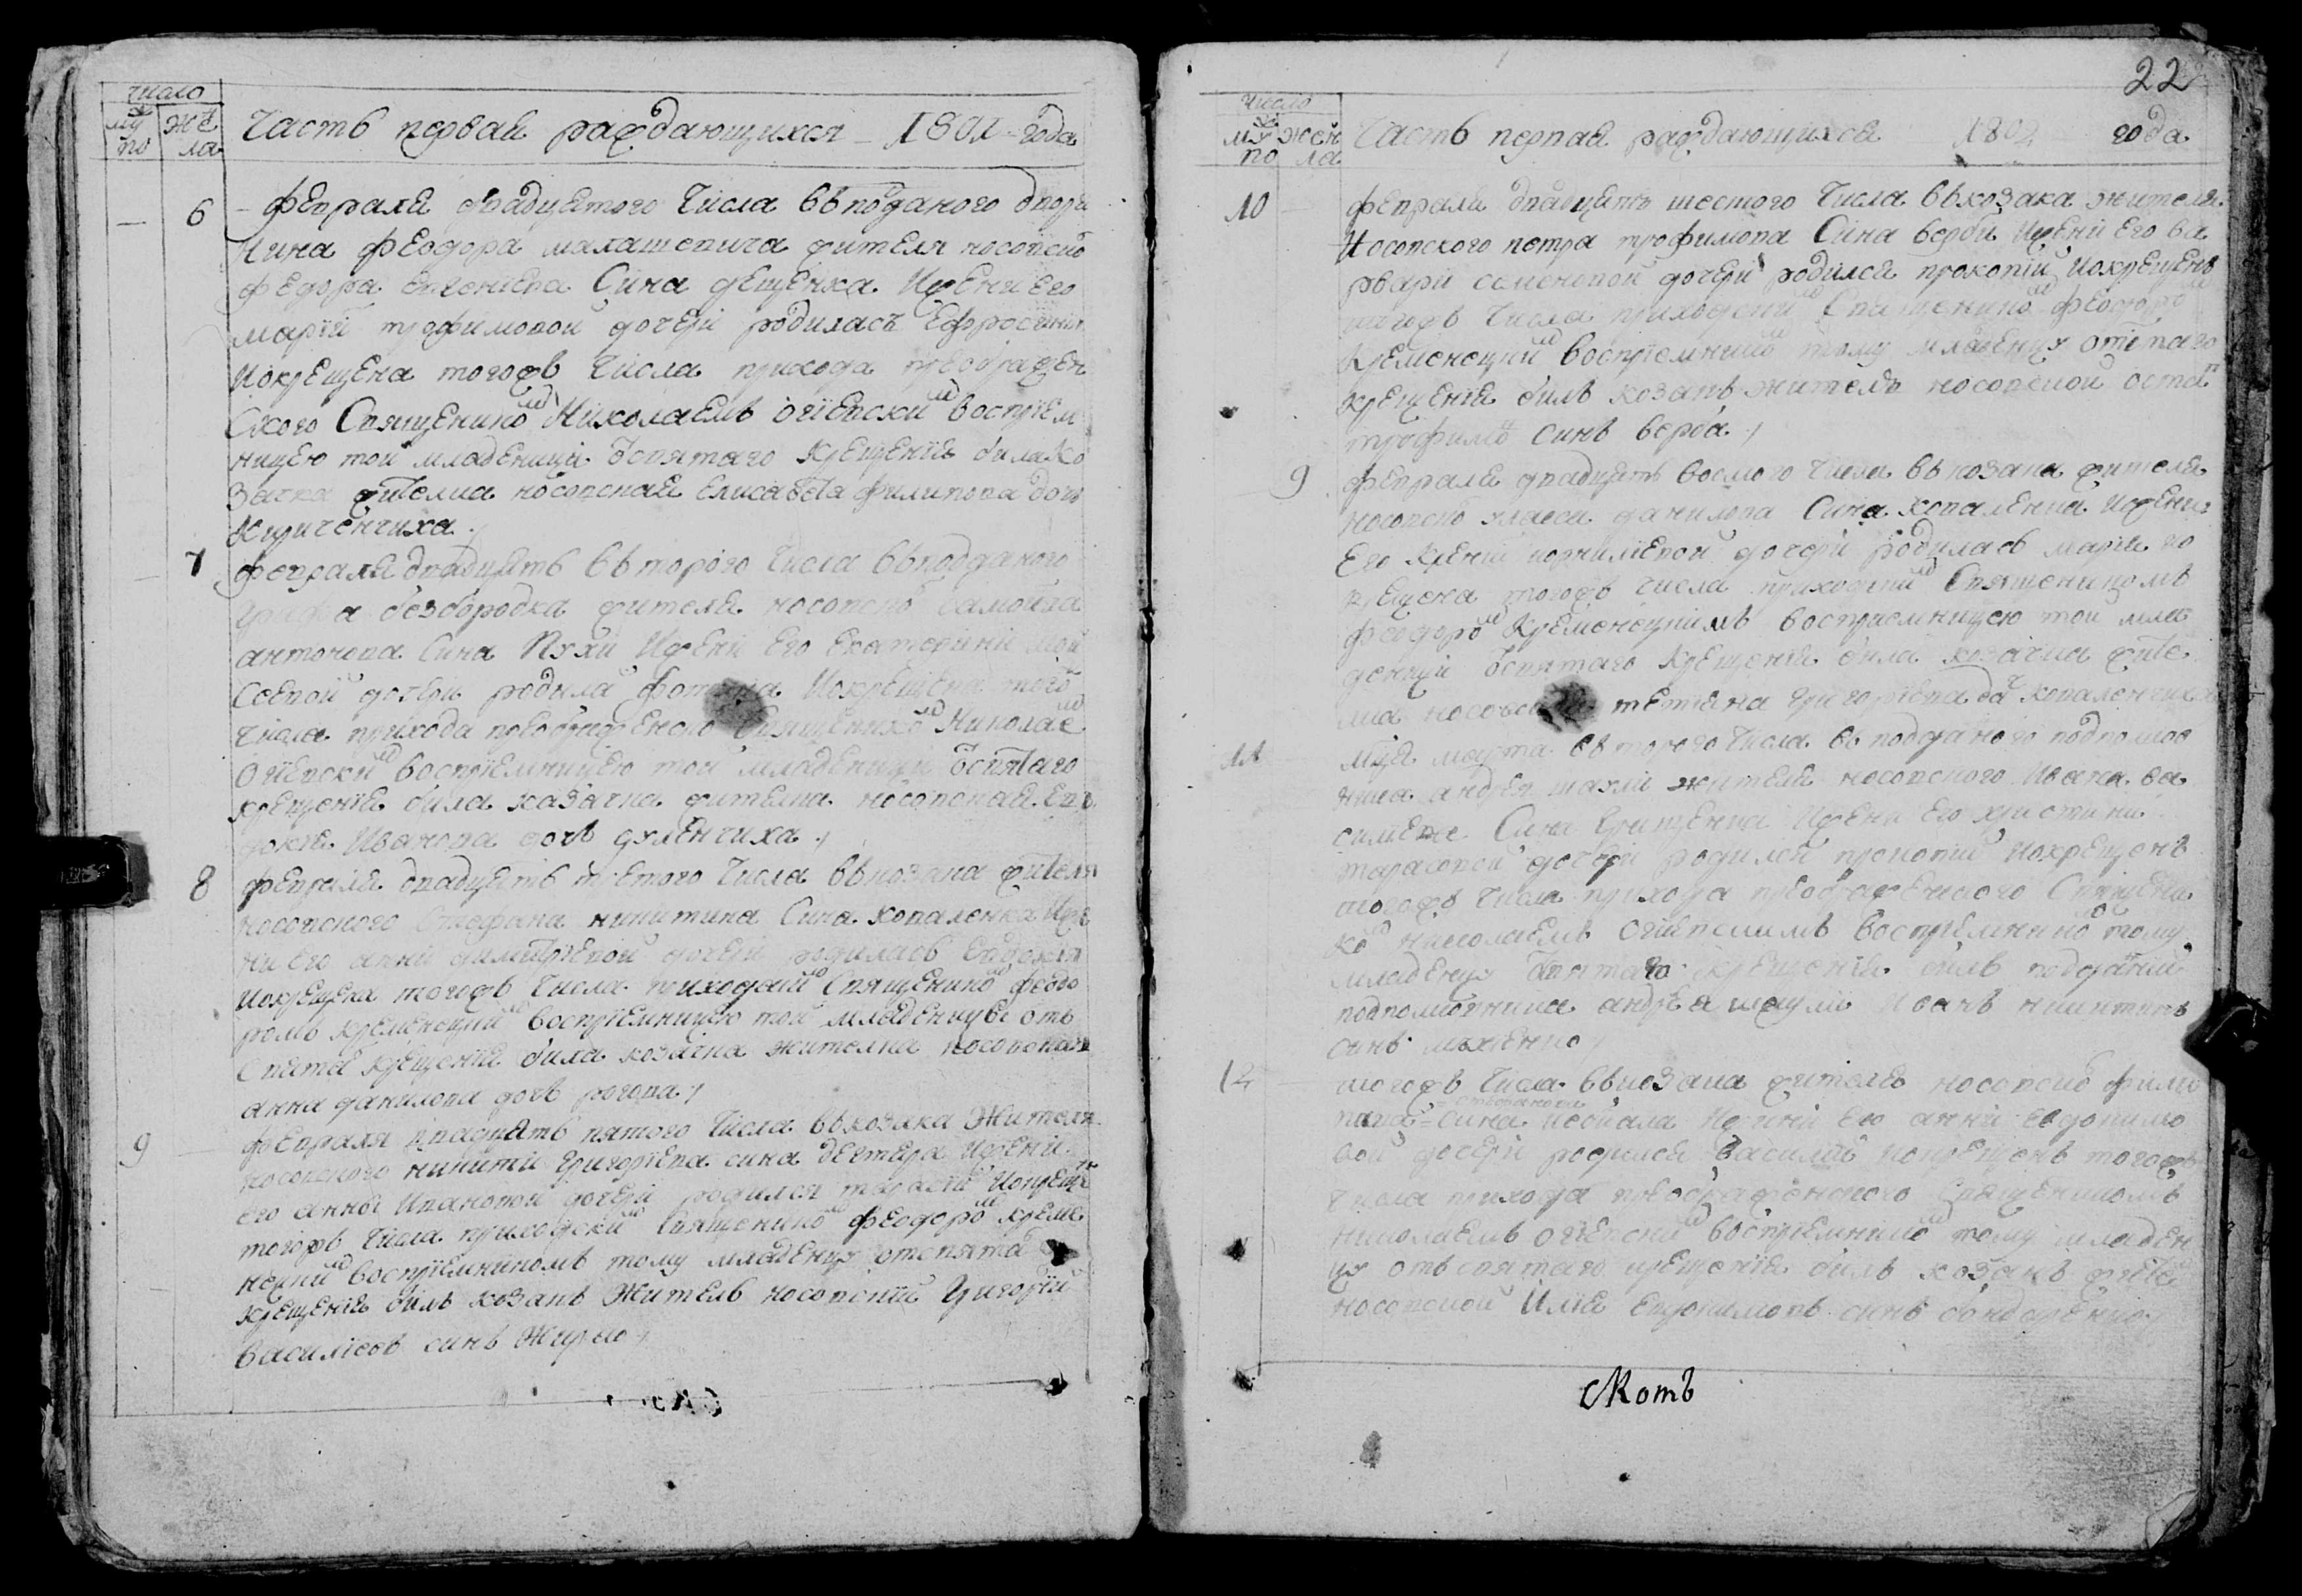 число
му же
по ла
Часть первая раждающихся 1801 года
6 Февраля двадцятого числа въ подданого двора
нина Феодора малашевича жителя носовско
федора евгенïева Сина дещенка Ижени его
марïй трофимовой дочерй родилась Ефросинïя
Йокрещена тогожъ числа прихода преображен
ского Священико Николаемъ огïевски воспрïем
ницею той младеници освятаго крещенïя била ко
зачка жителка носовская елисавета филипова дочь
Кириченчиха
7 февраля двадцять второго числа въ подданого
графа безбородка жителя носовско самойла
антонова Сина Пухи Ижени Его Екатерини мой
сеевой дочери родила Йокрещена того
числа прихода преображенско Священико Николае
Огïевски воспрïемницею той младеници освятаго
крещенïя била казачка жителка носовская Евъ
докïя Иванова дочь
8 февраля двадцять третого числа въ козака жителя
носовского Стефана никитина Сина коваленка Иже
ни его анни димитрïевой дочери родилась Евдокïя
Йокрещена тогожъ числа приходский Священико феодо
ромъ кременецким воспрïемницею той младенице отъ
свята крещенïя била козачка жителка носовская
анна данилова дочь рогова
9 февраля двадцять пятого числа въ козака Жителя
носовского никити григорïева сина дегтяра Ижени
его анны Ивановой дочери родился тарасïй Йокреще
тогожъ числа приходски Священико феодоро креме
нецки воспрïемникомъ тому младенцу отсвята
крещенïя билъ козакъ Житель носовский Григорïй
василïевъ синъ Жирко
22
число
му жен
по ла
Часть первая раждающихся 1801 года
10 февраля двадцять шестого числа въ козака жителя
Носовского петра трофимова Сина верби Ижени Его ва
рвари семеновой дочери родился прокопïй Йокрещенъ
тогожъ числа приходский Священико феодоро
Кременецкий воспрïемнико тому младенцу отсвятаго
крещенïя билъ козакъ житель носовской остап
трофимо синъ верба
9 февраля двадцять восмого числа въ козака жителя
носовско власа данилова Сина коваленка Ижени
Его Ксенïй корнилïевой дочери родилась марïя Йо
крещена тогожъ числа приходски Священикомъ
феодоро Кременецкимъ воспрïемницею той мла
деници освятаго крещенïя била козачка жите
лка тетяна григорïева до коваленчиха
11 мца марта второго числа въ подданого подпомощ
ника андрея шаули жителя носовского Ивана ва
силïева Сина грищенка Ижени его христини
тарасовой дочери родился прокопïй Йокрещенъ
тогожъ числа прихода преображенского Священи
ко николаемъ огïевскимъ воспрïемнико тому
младенцу освятаго крещенïя билъ подданий
подпомощника андрея шаули Иванъ никитинъ
синъ
12 тогожъ числа въ козака жителя носовско фили
па Степанова сина Ижени его анни евдокимо
вой дочери родился василïй Йокрещенъ тогожъ
числа прихода преображенского Священикомъ
николаемъ огïевски воспрïемнико тому младен
цу отъ святаго крещенïя билъ козакъ жите
носовской Илïя евдокимовъ синъ бондаренко
Скотъ